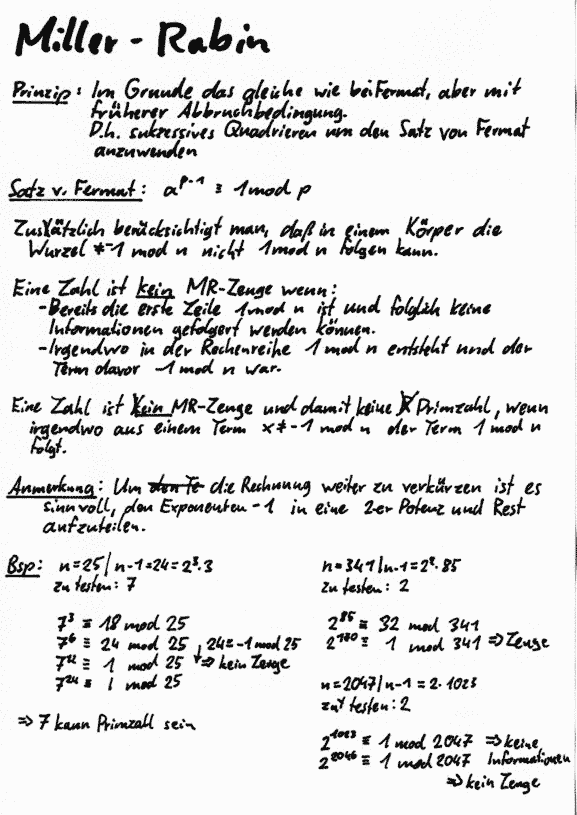 Miller - Rabin
Prinzip: Im Grunde das gleiche wie bei Fermat, aber mit
früherer Abbruchbedingung.
D.h. sukzessives Quadrieren um den Satz von Fermat
anzuwenden
Satz v. Fermat: a^(p-1) ≡ 1 mod p
Zusätzlich berücksichtigt man, daß in einem Körper die
Wurzel ≠ -1 mod n nicht 1 mod n folgen kann.
Eine Zahl ist kein MR-Zeuge wenn:
- Bereits die erste Zeile 1 mod n ist und folglich keine
Informationen gefolgert werden können.
- Irgendwo in der Rechenreihe 1 mod n entsteht und der
Term davor -1 mod n war.
Eine Zahl ist kein MR-Zeuge und damit keine Primzahl, wenn
irgendwo aus einem Term x ≠ -1 mod n der Term 1 mod n
folgt.
Anmerkung: Um den Te die Rechnung weiter zu verkürzen ist es
sinnvoll, den Exponenten -1 in eine 2er Potenz und Rest
aufzuteilen.
Bsp: n=25 | n-1=24=2³·3
zu testen: 7
7³ ≡ 18 mod 25
7⁶ ≡ 24 mod 25 , 24≡-1 mod 25
7¹² ≡ 1 mod 25 ⇒ kein Zeuge
7²⁴ ≡ 1 mod 25
⇒ 7 kann Primzahl sein
n=341 | n-1=2²·85
zu testen: 2
2⁸⁵ ≡ 32 mod 341
2¹⁷⁰ ≡ 1 mod 341 ⇒ Zeuge
n=2047 | n-1 = 2·1023
zu testen: 2
2¹⁰²³ ≡ 1 mod 2047 ⇒ keine
2²⁰⁴⁶ ≡ 1 mod 2047 Informationen
⇒ kein Zeuge